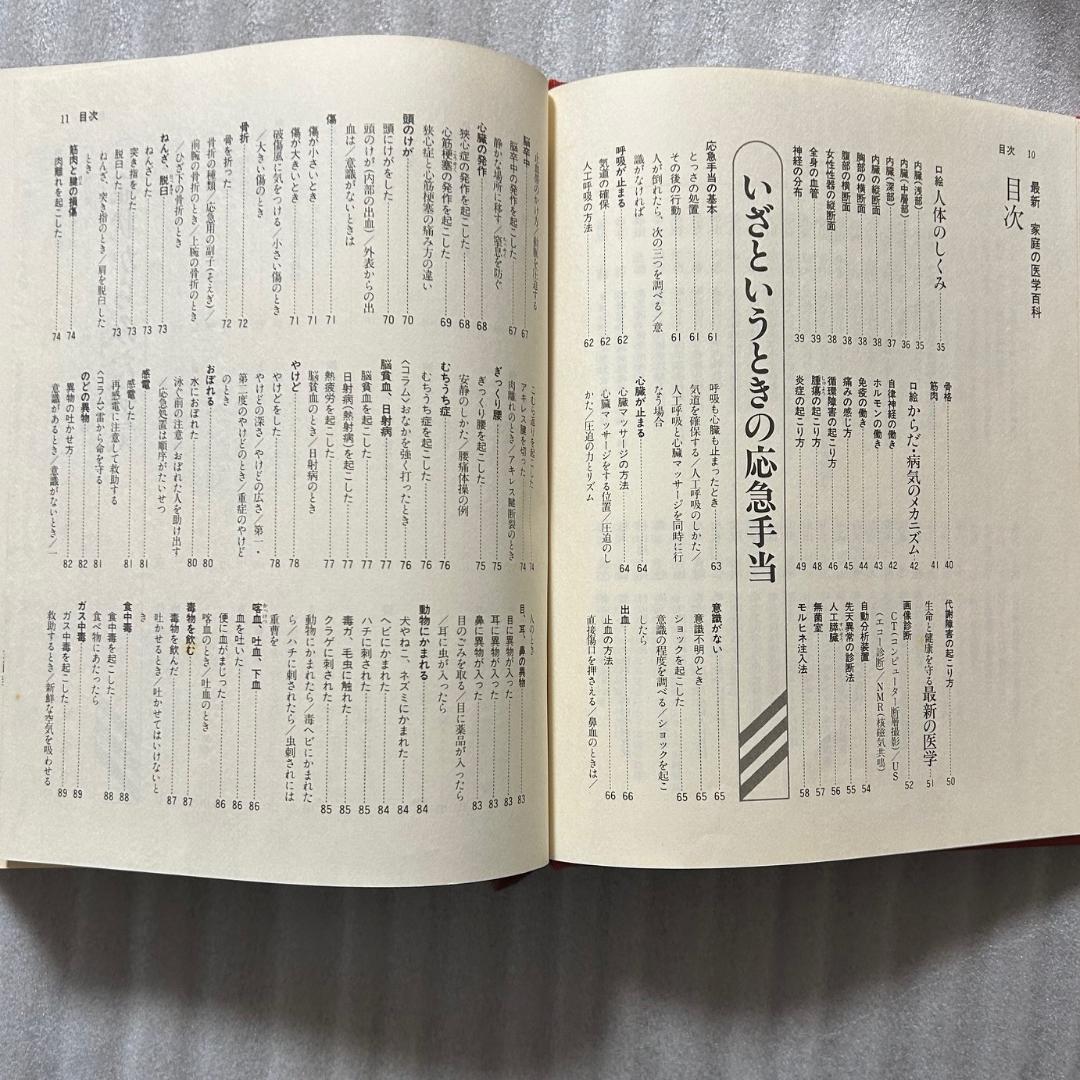 目次 10
最新 家庭の医学百科
目次
口絵 人体のしくみ……35
内臓(浅部)……35
内臓(中層部)……36
内臓(深部)……37
内臓の縦断面……38
胸部の横断面……38
腹部の横断面……38
女性性器の縦断面……38
全身の血管……39
神経の分布……39
骨格……40
筋肉……41
口絵 からだ・病気のメカニズム……42
自律神経の働き……42
ホルモンの働き……43
免疫の働き……44
痛みの感じ方……45
循環障害の起こり方……46
腫瘍の起こり方……48
炎症の起こり方……49
代謝障害の起こり方……50
生命と健康を守る最新の医学……51
画像診断……52
CT(コンピューター断層撮影)/US
(エコー診断)/NMR(核磁気共鳴)
自動分析装置……54
先天異常の診断法……55
人工臓器……56
無菌室……57
モルヒネ注入法……58
いざというときの応急手当
応急手当の基本……61
とっさの処置……61
その後の行動……61
人が倒れたら、次の三つを調べる/意
識がなければ
呼吸が止まる……62
気道の確保……62
人工呼吸の方法……62
呼吸も心臓も止まったとき……63
気道を確保する/人工呼吸のしかた/
人工呼吸と心臓マッサージを同時に行
なう場合
心臓が止まる……64
心臓マッサージの方法……64
心臓マッサージをする位置/圧迫のし
かた/圧迫の力とリズム
意識がない……65
意識不明のとき……65
ショックを起こした……65
意識の程度を調べる/ショックを起こ
したら
出血……66
止血の方法……66
直接傷口を押さえる/鼻血のときは/
11 目次
脳卒中……67
脳卒中の発作を起こした……67
静かな場所に移す/窒息を防ぐ
心臓の発作……68
狭心症の発作を起こした……68
心筋梗塞の発作を起こした……69
狭心症と心筋梗塞の痛み方の違い
頭のけが……70
頭にけがをした……70
頭のけが(内部の出血)/外表からの出
血は/意識がないときは
傷……71
傷が小さいとき……71
傷が大きいとき……71
破傷風に気をつける/小さい傷のとき
/大きい傷のとき
骨折……72
骨を折った……72
骨折の種類/応急用の副子(そえぎ)/
前腕の骨折のとき/上腕の骨折のとき
/ひざの骨折のとき
ねんざ、脱臼……73
ねんざした……73
突き指をした……73
脱臼した……73
ねんざ、突き指のとき/肩を脱臼した
とき
筋肉と腱の損傷……74
肉離れを起こした……74
こむら返りを起こした……74
アキレス腱を切った……74
肉離れのとき/アキレス腱断裂のとき
ぎっくり腰……75
ぎっくり腰を起こした……75
安静のしかた/腰痛体操の例
むちうち症……76
むちうち症を起こした……76
〈コラム〉おなかを強く打ったとき……76
脳貧血、日射病……77
脳貧血を起こした……77
日射病(熱射病)を起こした……77
熱疲労を起こした……77
脳貧血のとき/日射病のとき
やけど……78
やけどをした……78
やけどの深さ/やけどの広さ/第一・
第二度のやけどのとき/重症のやけど
のとき
おぼれる……80
水におぼれた……80
泳ぐ前の注意/おぼれた人を助け出す
/応急処置は順序がたいせつ
感電……81
感電した……81
再感電に注意して救助する
〈コラム〉雷から命を守る……81
のどの異物……82
異物の吐かせ方……82
意識があるとき/意識がないとき/一
目、耳、鼻の異物……83
目に異物が入った……83
耳に異物が入った……83
鼻に異物が入った……83
目のごみを取る/目に薬品が入ったら
/耳に虫が入ったら
動物にかまれる……84
犬やねこ、ネズミにかまれた……84
ヘビにかまれた……84
ハチに刺された……85
毒ガ、毛虫に触れた……85
クラゲに刺された……85
動物にかまれたら/毒ヘビにかまれた
ら/ハチに刺されたら/虫刺されには
重曹を
喀血、吐血、下血……86
血を吐いた……86
便に血がまじった……86
喀血のとき/吐血のとき
毒物を飲む……87
毒物を飲んだ……87
吐かせるとき/吐かせてはいけないと
き
食中毒……88
食中毒を起こした……88
食べ物にあたったら
ガス中毒……89
ガス中毒を起こした……89
救助するとき/新鮮な空気を吸わせる